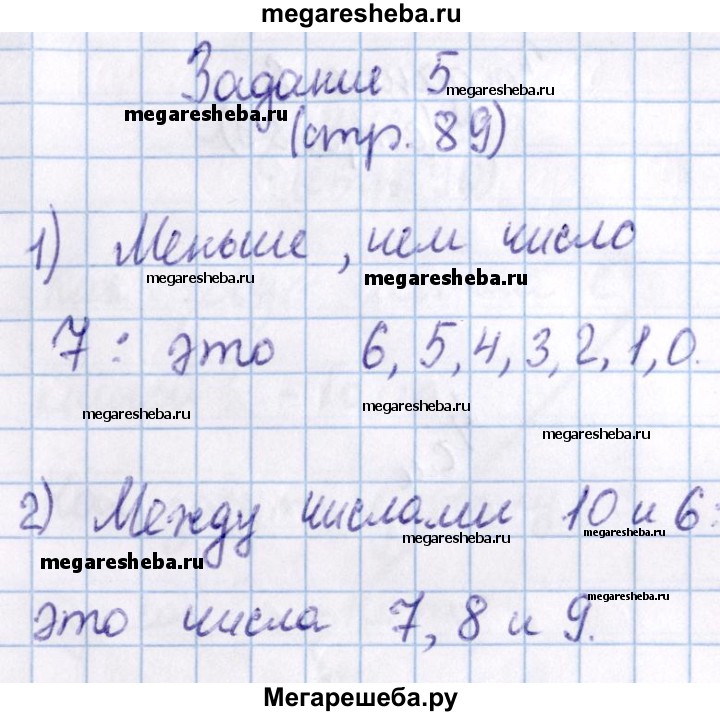 megaresheba.ru
Задание 5
megaresheba.ru
megaresheba.ru
(стр. 89)
1) Меньше, чем число
megaresheba.ru
megaresheba.ru
7: это 6, 5, 4, 3, 2, 1, 0.
megaresheba.ru
megaresheba.ru
megaresheba.ru
2) Между числами 10 и 6:
megaresheba.ru
megaresheba.ru
megaresheba.ru
это числа 7, 8 и 9.
megaresheba.ru
Мегарешеба.ру